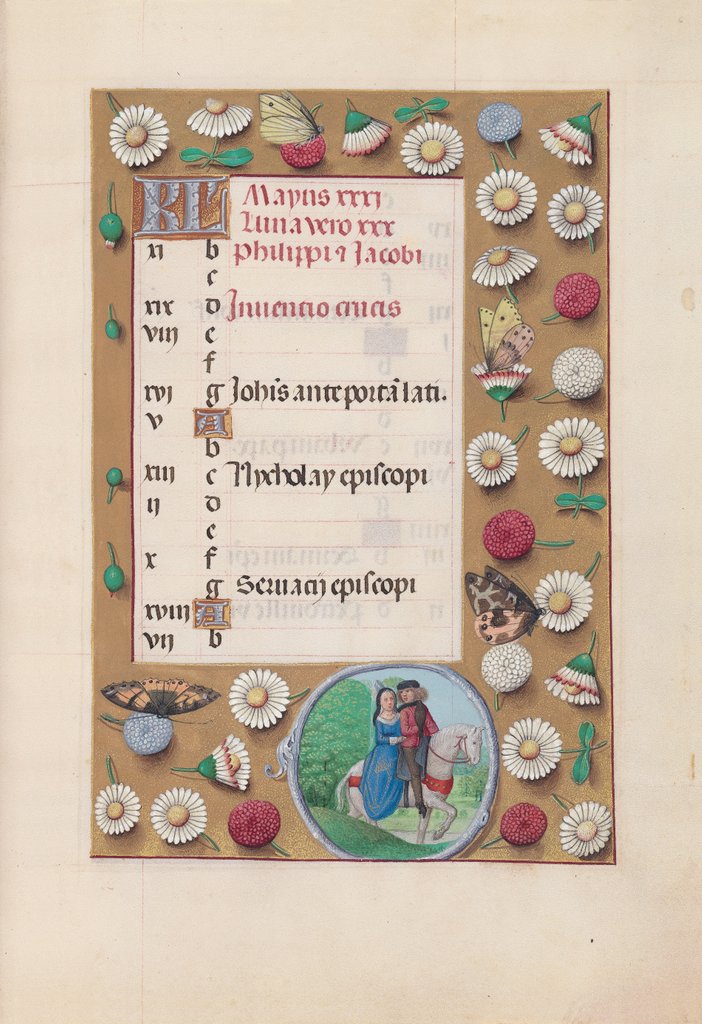 KL Mayus xxxi
Luna vero xxx
xi b Philippi ⁊ Jacobi
c
xix D Inuencio crucis
viii e
f
xvi g Joh̄is ante portā lati.
v A
b
xiii c Nycholay episcopi
ii D
e
x f
g Seruacij episcopi
xviii A
vii b